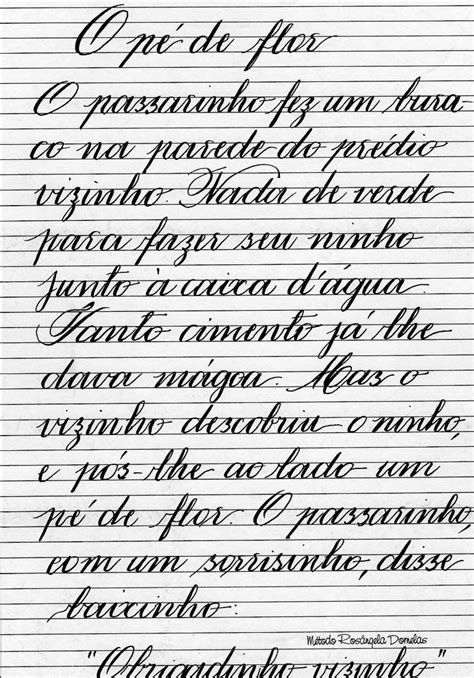 O pé de flor
O passarinho fez um bura-
co na parede do prédio
vizinho. Nada de verde
para fazer seu ninho
junto à caixa d'água.
Tanto cimento já lhe
dava mágoa. Mas o
vizinho descobriu o ninho,
e pôs-lhe ao lado um
pé de flor. O passarinho,
com um sorrisinho, disse
baixinho:
Método Rosângela Dornelas
"Obrigadinho vizinho"